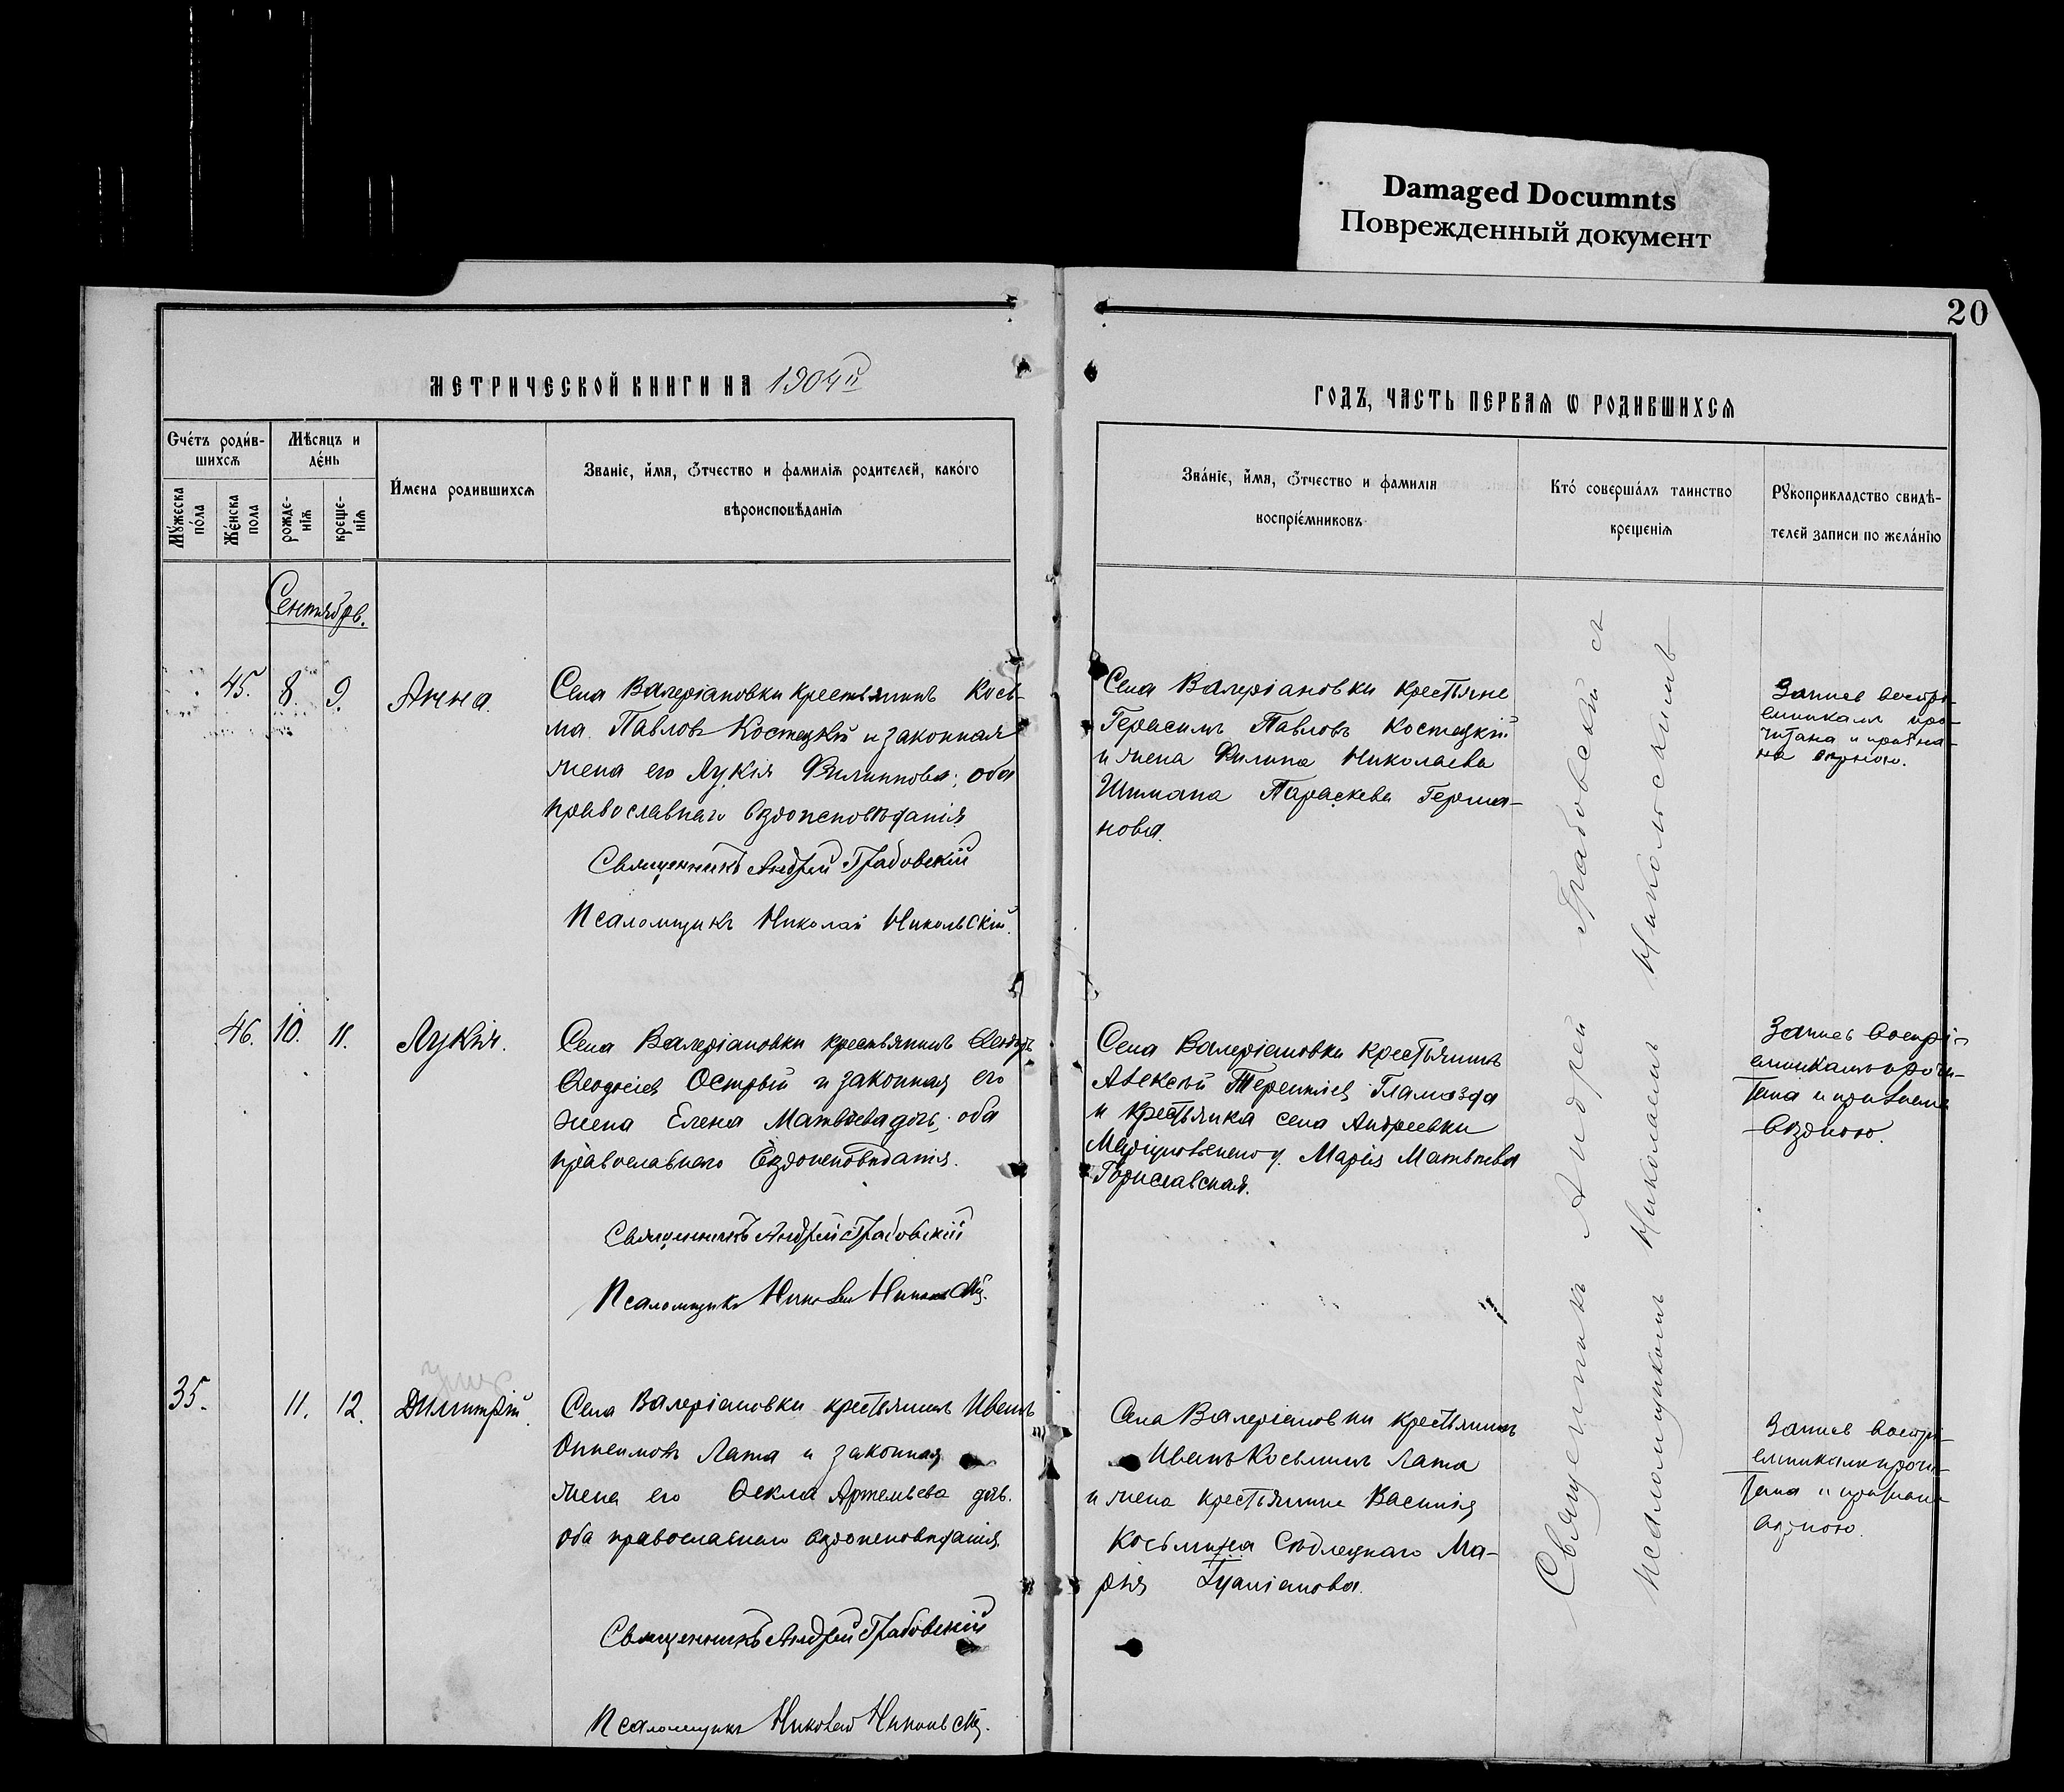 Damaged Documnts
Поврежденный документ
20
МЕТРИЧЕСКОЙ КНИГИ НА 1904й
ГОДЪ, ЧАСТЬ ПЕРВАЯ Ѡ РОДИВШИХСЯ
Счётъ роди́в-
шихся
Мѣсяцъ и
де́нь
Мꙋжеска
по́ла
Же́нска
пола
рожде-
нія
креще-
нія
И́мена родившихся
Званіе, и́мя, ѻ́тчество и фамилія родителей, како́го
вѣроисповѣданія
Зва́ніе, и́мя, ѻ́тчество и фамилія
воспріе́мниковъ
Кто́ соверша́лъ таинство
крещенія
Рꙋкоприкладство свидѣ-
телей записи по жела́нію
Сентябрь.
45. 8. 9. Анна.
Села Валеріановки крестьянинъ Кось-
ма Павловъ Костецкій и законная
жена его Лукія Филиппова; оба
православнаго вѣроисповѣданія.
Священникъ Андрей Грабовскій
Псаломщикъ Николай Никольскій.
Села Валеріановки крестьяне
Герасимъ Павловъ Костецкій
и жена Филипа Николаева
Шимана Параскева Герма-
нова.
Запись воспрі-
емникамъ про-
читана и призна-
на вѣрною.
46. 10. 11. Лукія.
Села Валеріановки крестьянинъ Ѳеодоръ
Ѳеодосіевъ Острый и законная его
жена Елена Матвѣева дочь; оба
православнаго вѣроисповѣданія.
Священникъ Андрей Грабовскій
Псаломщикъ Николай Никольскій.
Села Валеріановки крестьянинъ
Алексѣй Терентіевъ Гламазда
и крестьянка села Андреевки
Маріупольскаго у. Марія Матвѣева
Гориславская.
Запись воспрі-
емникамъ прочи-
тана и признана
вѣрною.
35. 11. 12. Димитрій.
умер
Села Валеріановки крестьянинъ Иванъ
Онисимовъ Лата и законная
жена его Ѳекла Артемьева доч.
оба православнаго вѣроисповѣданія.
Священникъ Андрей Грабовскій
Псаломщикъ Николай Никольскій.
Села Валеріановки крестьянинъ
Иванъ Косьминъ Лата
и жена крестьянина Василія
Косьмина Сѣдлецкаго Ма-
рія
Запись воспрі-
емникамъ прочи-
тана и признана
вѣрною.
Священникъ Андрей Грабовскій съ
псаломщикомъ Николаемъ Никольскимъ